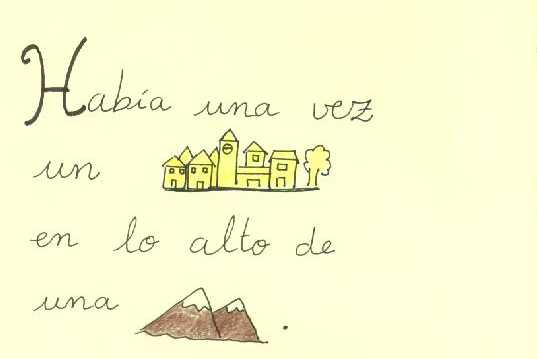 Había una vez
un
en lo alto de
una .